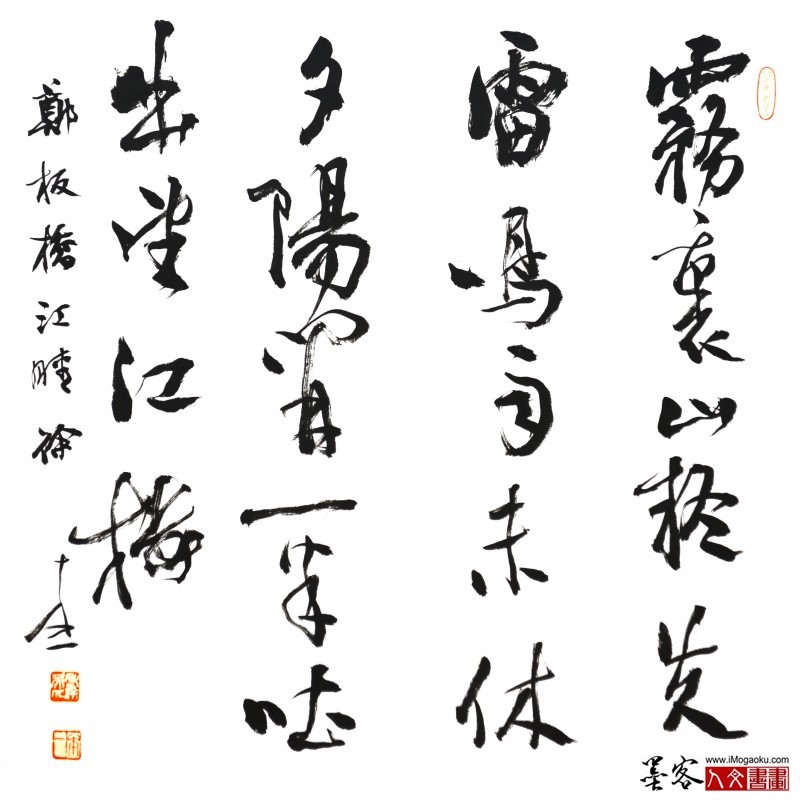 霧裏山疑失
雷鳴雨未休
夕陽開一半吐
出望江樓
鄭板橋江晴徐
墨客
www.iMogaoku.com
人文書畫